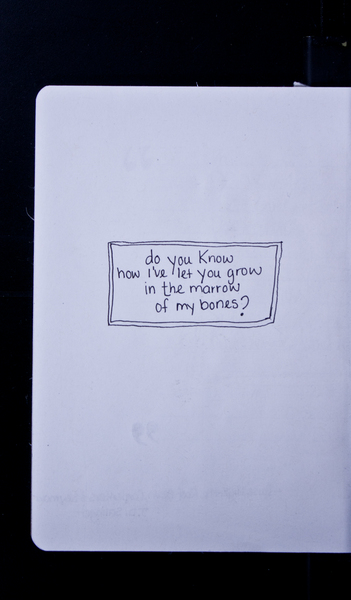 do you Know
how I've let you grow
in the marrow
of my bones?